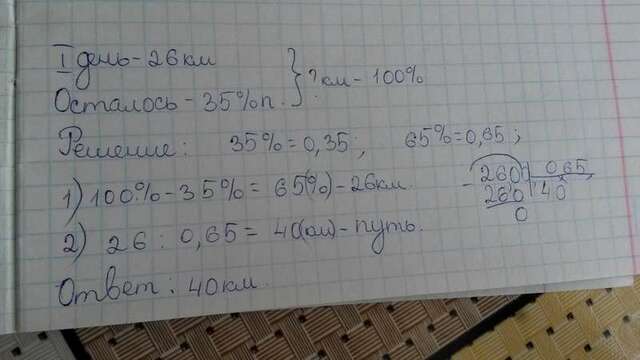 I день - 26 км
Осталось - 35% п. } ? км - 100%
Решение: 35% = 0,35; 65% = 0,65;
1) 100% - 35% = 65(%) - 26 км.
2) 26 : 0,65 = 40(км) - путь.
Ответ: 40 км.
- 260 | 0,65
260 | 40
0